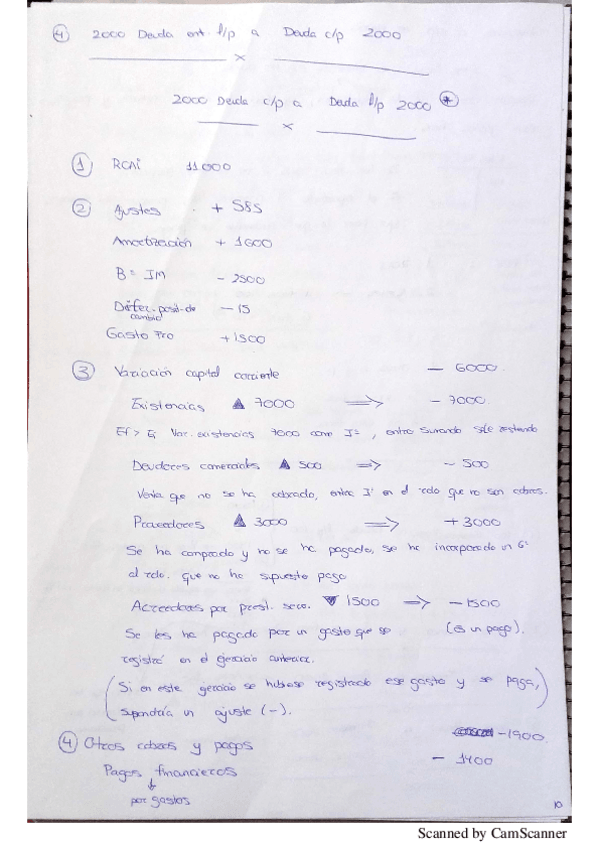 ④ 2000 Deuda ent. l/p a Deuda c/p 2000
x
2000 Deuda c/p a Deuda l/p 2000 *
x
① RCAI 11000
② Ajustes + 585
Amortización + 1600
Bº IM - 2500
Difer. posit. de cambio - 15
Gasto Pro +1500
③ Variación capital corriente - 6000
Existencias ▲ 7000 ⟹ - 7000.
Ef > Ei Var. existencias 7000 como Iº, entro sumando sale restando
Deudores comerciales ▲ 500 ⟹ - 500
Venta que no se ha cobrado, entre Iº en el rdo que no son cobros.
Proveedores ▲ 3000 ⟹ + 3000
Se ha comprado y no se ha pagado, se ha incorporado un Gº
al rdo. que no ha supuesto pago
Acreedores por prest. serv. ▼ 1500 ⟹ - 1500
Se les ha pagado por un gasto que se (es un pago).
registró en el ejercicio anterior.
(Si en este ejercicio se hubiese registrado ese gasto y se paga,
supondría un ajuste (-).
④ Otros cobros y pagos - 1900
Pagos financieros - 1400
↓
por gastos
10
Scanned by CamScanner